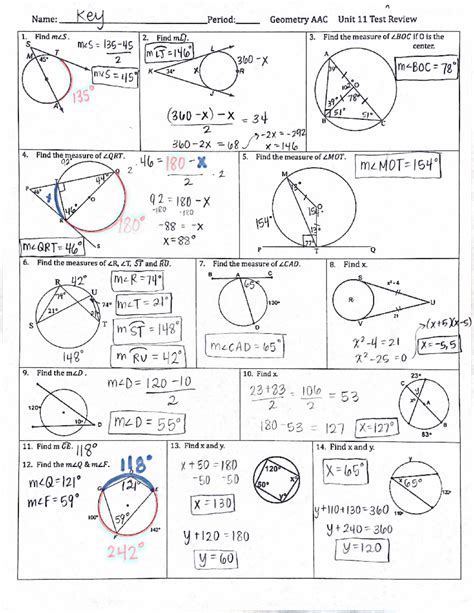 Name: Key Period: Geometry AAC Unit 11 Test Review
1. Find m∠S.
m∠S = 135-45
2
m∠S = 45°
S
T
M
45°
A
135°
2. Find m
= 146°
K
34°
L
360-X
(360-x)-x = 34
2
360-2x = 68
-2x = -292
x = 146
3. Find the measure of ∠BOC if O is the
center.
m∠BOC = 78°
A
39°
102°
78°
39°
51°
51°
B
C
4. Find the measure of ∠QRT.
46 = 180-x
2
92 = 180-x
-180 -180
-88 = -x
x = 88°
44°
46°
46°
180°
m∠QRT = 46°
5. Find the measure of ∠MOT.
m∠MOT = 154°
M
13°
154°
O
13
77°
P
T
Q
6. Find the measures of ∠R, ∠T, ST and RU.
R
42°
U
79°
74°
21°
21°
S
T
148°
m∠R = 74°
m∠T = 21°
m ST = 148°
m RV = 42°
7. Find the measure of ∠CAD.
B
A
C
65°
130°
D
m∠CAD = 65°
8. Find x.
S
x²-4
R
U
21
V
x²-4=21
x²-25=0
(x+5)(x-5)
x=-5,5
9. Find the m∠D.
120°
10°
D
m∠D = 120-10
2
m∠D = 55°
10. Find x.
23+83 = 106 = 53
2 2
180-53 = 127
x=127°
23°
C
A
B
83°
11. Find m GE. 118°
12. Find the m∠Q & m∠F.
m∠Q=121°
m∠F=59°
118°
121°
59°
100°
142°
242°
13. Find x and y.
x+50=180
-50 -50
x=130
y+120=180
y=60
120°
50°
x°
y°
14. Find x and y.
x=65°
x°
65°
y+110+130=360
y+240=360
y=120°